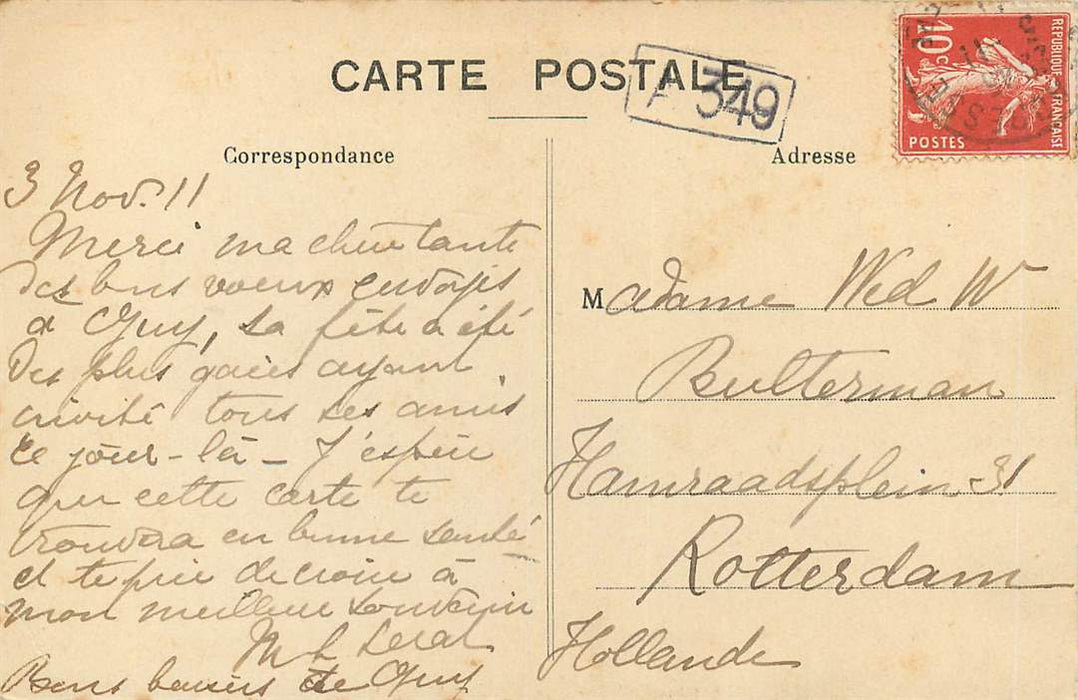 CARTE POSTALE
349
Correspondance
Adresse
10c
REPUBLIQUE FRANCAISE
POSTES
3 Nov. 11
Merci ma chère tante
des bons voeux envoyés
à Guy, sa fête a été
des plus gaies ayant
invité tous ses amis
ce jour-là - J'espère
que cette carte te
trouvera en bonne santé
et te prie de croire à
mon meilleur souvenir
M L
Bons baisers de Guy
Madame Wed W
Bulterman
Hamraadsplein 31
Rotterdam
Hollande